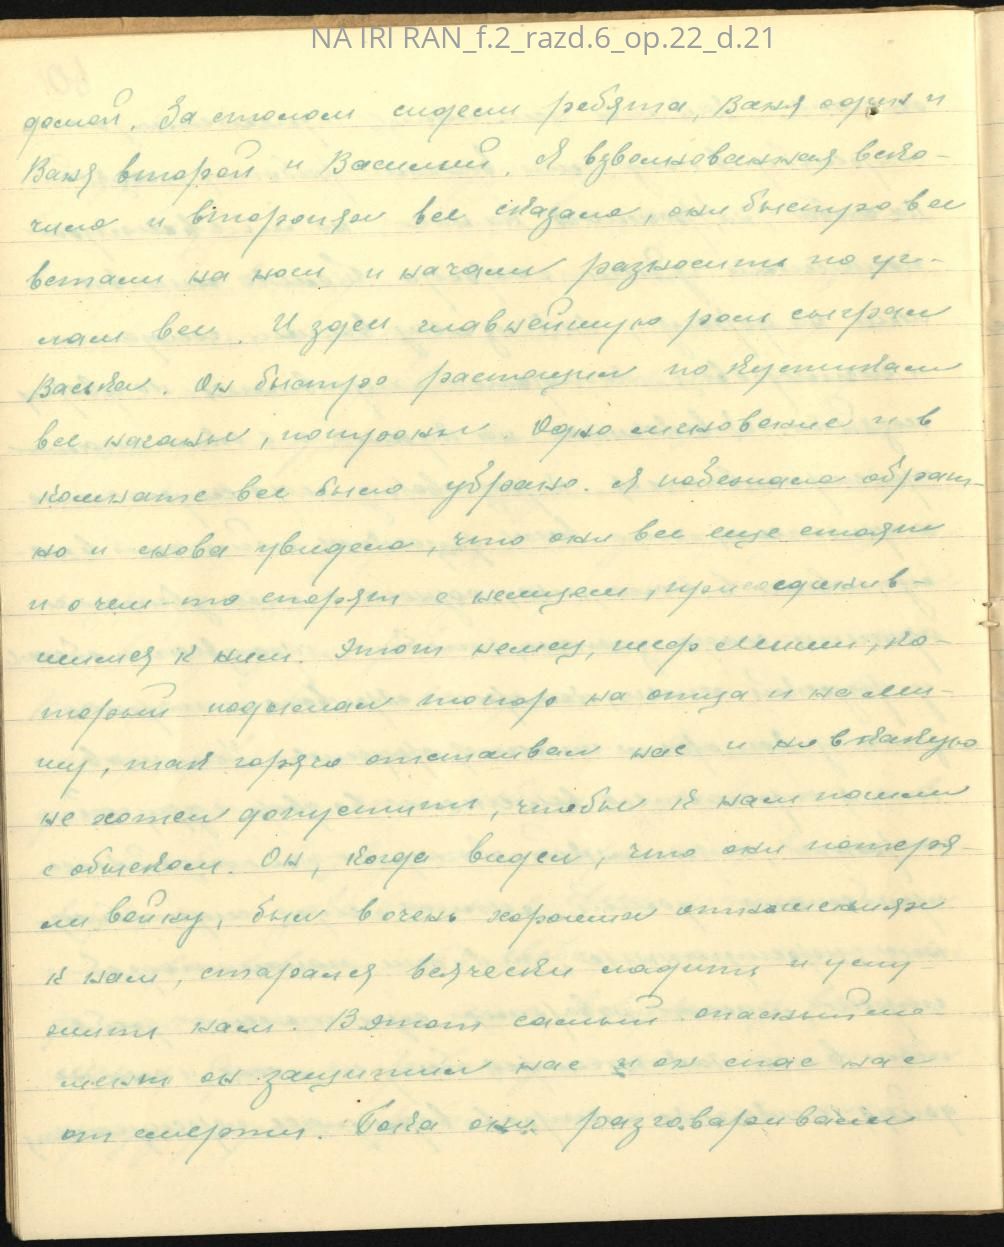 NA IRI RAN_f.2_razd.6_op.22_d.21
домой. За столом сидели ребята, Ваня один и
Ваня второй и Василий. Я взволнованная вско-
чила и второпях все сказала, они быстро все
встали на ноги и начали разносить по уг-
лам все. И здесь главнейшую роль сыграл
Васька. Он быстро растащил по кустикам
все наганы, патроны. Одно мгновение и в
комнате все было убрано. Я побежала обрат-
но и снова увидела, что они все еще стоят
и о чем-то спорят с немцем, присоединив-
шимся к ним. Этот немец, шеф Миши, ко-
торый подымал топор на отца и на Ми-
шу, так горячо отстаивал нас и ни в какую
не хотел допустить, чтобы к нам пошли
с обыском. Он, когда видел, что они потеря-
ли войну, был в очень хороших отношениях
к нам, старался всячески ладить и услу-
жить нам. В этот самый опасный мо-
мент он защитил нас и он спас нас
от смерти. Пока они разговаривали